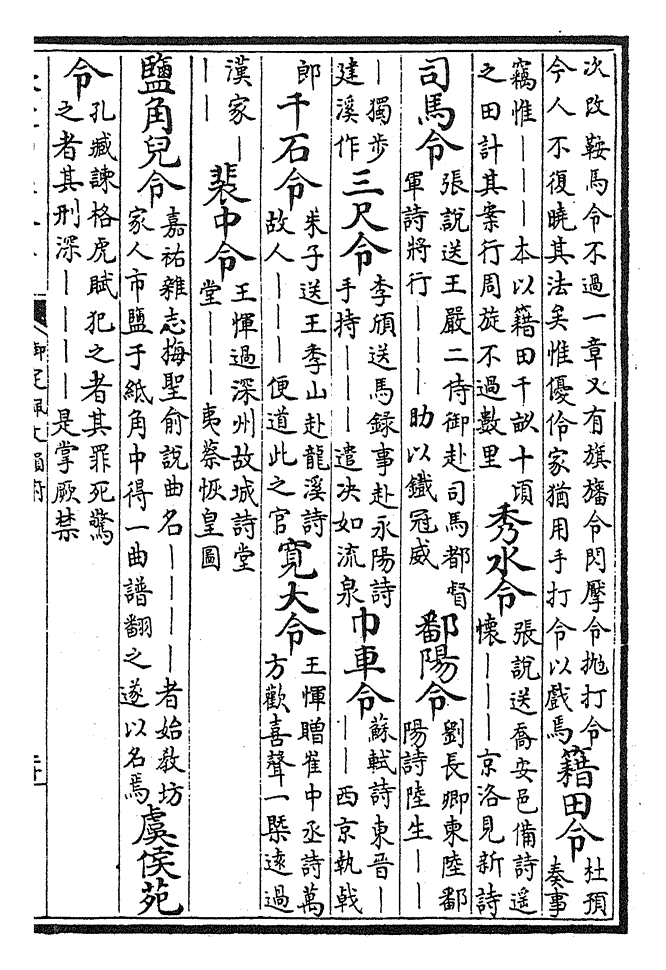 次改鞍馬令不過一章又有旗旛令閃擪令拋打令
今人不復曉其法矣惟優伶家猶用手打令以戲焉
籍田令
杜預
奏事
竊惟｜｜｜本以籍田千畝十頃
之田計其案行周旋不過數里
秀水令
張說送喬安邑備詩遥
懷｜｜｜京洛見新詩
司馬令
張說送王嚴二侍御赴司馬都督
軍詩將行｜｜｜助以鐵冠威
鄱陽令
劉長卿東陸鄱
陽詩陸生｜｜
｜獨步
建溪作
三尺令
李頎送馬錄事赴永陽詩
手持｜｜｜遣决如流泉
巾車令
蘇軾詩東晉｜
｜｜西京執戟
郎
千石令
朱子送王季山赴龍溪詩
故人｜｜｜便道此之官
寛大令
王惲贈崔中丞詩萬
方歡喜聲一槩遠過
漢家｜
｜｜
裴中令
王惲過深州故城詩堂
堂｜｜｜夷蔡恢皇圖
鹽角兒令
嘉祐雜志梅聖俞說曲名｜｜｜｜者始敎坊
家人市鹽于紙角中得一曲譜翻之遂以名焉
虞侯苑
令
孔臧諫格虎賦犯之者其罪死驚
之者其刑深｜｜｜｜是掌厥禁
御定佩文韻府